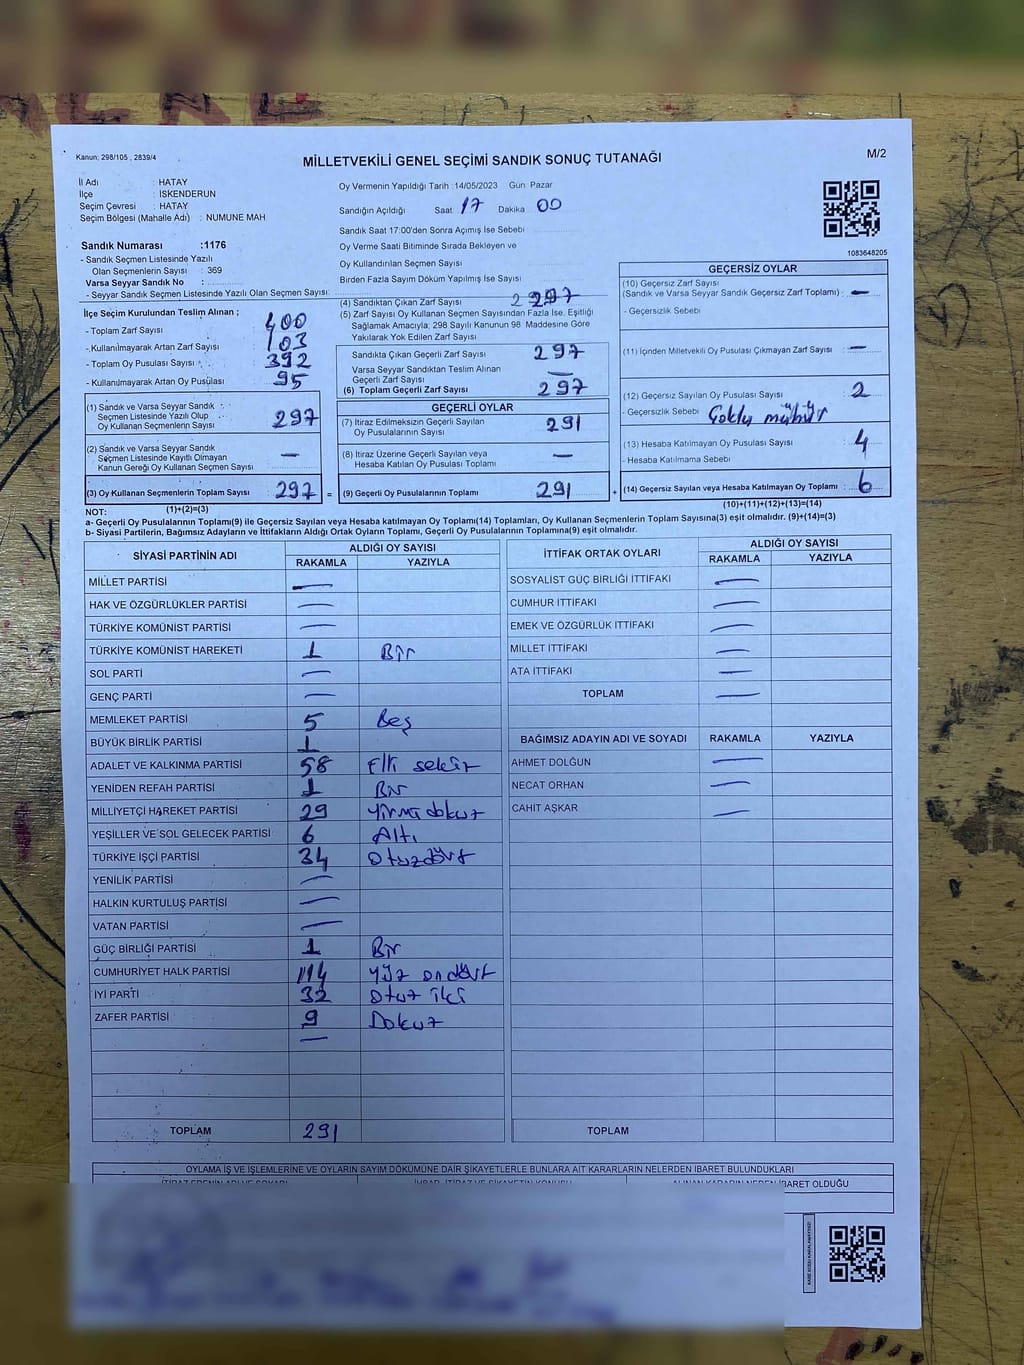 Kanun; 298/105 , 2839/4
MİLLETVEKİLİ GENEL SEÇİMİ SANDIK SONUÇ TUTANAĞI
M/2
İl Adı : HATAY
İlçe : İSKENDERUN
Seçim Çevresi : HATAY
Seçim Bölgesi (Mahalle Adı) : NUMUNE MAH
Oy Vermenin Yapıldığı Tarih :14/05/2023 Gün: Pazar
Sandığın Açıldığı Saat 17 Dakika 00
Sandık Saat 17:00'den Sonra Açımış İse Sebebi
Oy Verme Saati Bitiminde Sırada Bekleyen ve
Oy Kullandırılan Seçmen Sayısı
Birden Fazla Sayım Döküm Yapılmış İse Sayısı
1083648205
Sandık Numarası :1176
- Sandık Seçmen Listesinde Yazılı
Olan Seçmenlerin Sayısı : 369
Varsa Seyyar Sandık No :
- Seyyar Sandık Seçmen Listesinde Yazılı Olan Seçmen Sayısı:
İlçe Seçim Kurulundan Teslim Alınan ;
- Toplam Zarf Sayısı : 400
- Kullanılmayarak Artan Zarf Sayısı : 103
- Toplam Oy Pusulası Sayısı : 392
- Kullanılmayarak Artan Oy Pusulası 95
(1) Sandık ve Varsa Seyyar Sandık
Seçmen Listesinde Yazılı Olup
Oy Kullanan Seçmenlerin Sayısı 297
(2) Sandık ve Varsa Seyyar Sandık
Seçmen Listesinde Kayıtlı Olmayan
Kanun Gereği Oy Kullanan Seçmen Sayısı —
(3) Oy Kullanan Seçmenlerin Toplam Sayısı 297 =
(1)+(2)=(3)
(4) Sandıktan Çıkan Zarf Sayısı 2 297
(5) Zarf Sayısı Oy Kullanan Seçmen Sayısından Fazla İse. Eşitliği
Sağlamak Amacıyla; 298 Sayılı Kanunun 98 Maddesine Göre
Yakılarak Yok Edilen Zarf Sayısı
Sandıkta Çıkan Geçerli Zarf Sayısı 297
Varsa Seyyar Sandıktan Teslim Alınan
Geçerli Zarf Sayısı —
(6) Toplam Geçerli Zarf Sayısı 297
GEÇERLİ OYLAR
(7) İtiraz Edilmeksizin Geçerli Sayılan
Oy Pusulalarının Sayısı 291
(8) İtiraz Üzerine Geçerli Sayılan veya
Hesaba Katılan Oy Pusulası Toplamı —
(9) Geçerli Oy Pusulalarının Toplamı 291 +
GEÇERSİZ OYLAR
(10) Geçersiz Zarf Sayısı
(Sandık ve Varsa Seyyar Sandık Geçersiz Zarf Toplamı) : —
- Geçersizlik Sebebi
(11) İçinden Milletvekili Oy Pusulası Çıkmayan Zarf Sayısı : —
(12) Geçersiz Sayılan Oy Pusulası Sayısı : 2
- Geçersizlik Sebebi Çoklu mühür
(13) Hesaba Katılmayan Oy Pusulası Sayısı : 4
- Hesaba Katılmama Sebebi
(14) Geçersiz Sayılan veya Hesaba Katılmayan Oy Toplamı : 6
(10)+(11)+(12)+(13)=(14)
NOT:
a- Geçerli Oy Pusulalarının Toplamı(9) ile Geçersiz Sayılan veya Hesaba katılmayan Oy Toplamı(14) Toplamları, Oy Kullanan Seçmenlerin Toplam Sayısına(3) eşit olmalıdır. (9)+(14)=(3)
b- Siyasi Partilerin, Bağımsız Adayların ve İttifakların Aldığı Ortak Oyların Toplamı, Geçerli Oy Pusulalarının Toplamına(9) eşit olmalıdır.
SİYASİ PARTİNİN ADI ALDIĞI OY SAYISI
RAKAMLA YAZIYLA
MİLLET PARTİSİ —
HAK VE ÖZGÜRLÜKLER PARTİSİ —
TÜRKİYE KOMÜNİST PARTİSİ —
TÜRKİYE KOMÜNİST HAREKETİ 1 Bir
SOL PARTİ —
GENÇ PARTİ —
MEMLEKET PARTİSİ 5 Beş
BÜYÜK BİRLİK PARTİSİ 1
ADALET VE KALKINMA PARTİSİ 58 Elli sekiz
YENİDEN REFAH PARTİSİ 1 Bir
MİLLİYETÇİ HAREKET PARTİSİ 29 Yirmi dokuz
YEŞİLLER VE SOL GELECEK PARTİSİ 6 Altı
TÜRKİYE İŞÇİ PARTİSİ 34 Otuzdört
YENİLİK PARTİSİ —
HALKIN KURTULUŞ PARTİSİ —
VATAN PARTİSİ —
GÜÇ BİRLİĞİ PARTİSİ 1 Bir
CUMHURİYET HALK PARTİSİ 114 Yüz ondört
İYİ PARTİ 32 Otuz iki
ZAFER PARTİSİ 9 Dokuz
—
TOPLAM 291
İTTİFAK ORTAK OYLARI ALDIĞI OY SAYISI
RAKAMLA YAZIYLA
SOSYALİST GÜÇ BİRLİĞİ İTTİFAKI —
CUMHUR İTTİFAKI —
EMEK VE ÖZGÜRLÜK İTTİFAKI —
MİLLET İTTİFAKI —
ATA İTTİFAKI —
TOPLAM —
BAĞIMSIZ ADAYIN ADI VE SOYADI RAKAMLA YAZIYLA
AHMET DOLĞUN —
NECAT ORHAN —
CAHİT AŞKAR —
TOPLAM
OYLAMA İŞ VE İŞLEMLERİNE VE OYLARIN SAYIM DÖKÜMÜNE DAİR ŞİKAYETLERLE BUNLARA AİT KARARLARIN NELERDEN İBARET BULUNDUKLARI
İTİRAZ EDENİN ADI VE SOYADI İHBAR, İTİRAZ VE ŞİKAYETİN KONUSU ALINAN KARARIN NEDEN İBARET OLDUĞU